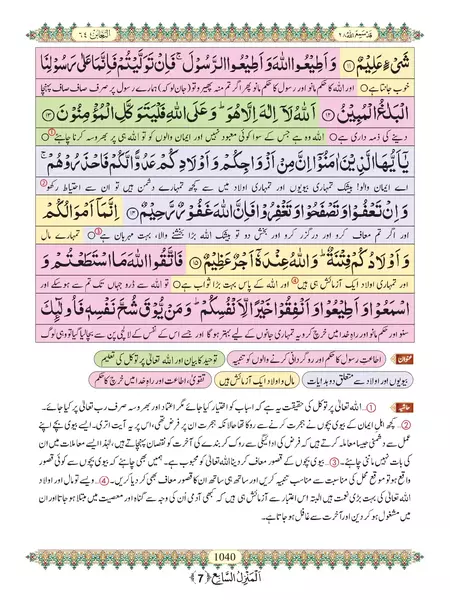 قد سمع الله ٢٨
التغابن ٦٤
شَیْءٍ عَلِیْمٌ ﴿۱۱﴾ وَ اَطِیْعُوا اللّٰهَ وَ اَطِیْعُوا الرَّسُوْلَ ۚ فَاِنْ تَوَلَّیْتُمْ فَاِنَّمَا عَلٰی رَسُوْلِنَا
خوب جانتا ہے ○ اور اللہ کا حکم مانو اور رسول کا حکم مانو پھر اگر تم منہ پھیرو تو (جان لو کہ) ہمارے رسول پر صرف صاف صاف پہنچا
الْبَلٰغُ الْمُبِیْنُ ﴿۱۲﴾ اَللّٰهُ لَاۤ اِلٰهَ اِلَّا هُوَ ؕ وَ عَلَی اللّٰهِ فَلْیَتَوَكَّلِ الْمُؤْمِنُوْنَ ﴿۱۳﴾
دینے کی ذمہ داری ہے ○ اللہ وہ ہے جس کے سوا کوئی معبود نہیں اور ایمان والوں کو تو اللہ ہی پر بھروسہ کرنا چاہئے ○①
یٰۤاَیُّهَا الَّذِیْنَ اٰمَنُوْۤا اِنَّ مِنْ اَزْوَاجِكُمْ وَ اَوْلَادِكُمْ عَدُوًّا لَّكُمْ فَاحْذَرُوْهُمْ ۚ
اے ایمان والو! بیشک تمہاری بیویوں اور تمہاری اولاد میں سے کچھ تمہارے دشمن ہیں تو ان سے احتیاط رکھو②
وَ اِنْ تَعْفُوْا وَ تَصْفَحُوْا وَ تَغْفِرُوْا فَاِنَّ اللّٰهَ غَفُوْرٌ رَّحِیْمٌ ﴿۱۴﴾ اِنَّمَاۤ اَمْوَالُكُمْ
اور اگر تم معاف کرو اور درگزر کرو اور بخش دو تو بیشک اللہ بڑا بخشنے والا، بہت مہربان ہے ○③ تمہارے مال
وَ اَوْلَادُكُمْ فِتْنَةٌ ؕ وَ اللّٰهُ عِنْدَهٗۤ اَجْرٌ عَظِیْمٌ ﴿۱۵﴾ فَاتَّقُوا اللّٰهَ مَا اسْتَطَعْتُمْ وَ
اور تمہاری اولاد ایک آزمائش ہی ہیں④ اور اللہ کے پاس بہت بڑا ثواب ہے ○ تو اللہ سے ڈرو جہاں تک تم سے ہوسکے اور
اسْمَعُوْا وَ اَطِیْعُوْا وَ اَنْفِقُوْا خَیْرًا لِّاَنْفُسِكُمْ ؕ وَ مَنْ یُّوْقَ شُحَّ نَفْسِهٖ فَاُولٰٓىِٕكَ
سنو اور حکم مانو اور راہِ خدا میں خرچ کرو یہ تمہاری جانوں کے لیے بہتر ہوگا اور جسے اس کے نفس کے لالچی پن سے بچالیا گیا تو وہی لوگ
عنوان اطاعتِ رسول کا حکم اور روگردانی کرنے والوں کو تنبیہ توحید کا بیان اور اللہ تعالیٰ پر توکل کی تعلیم
بیویوں اور اولاد سے متعلق دو ہدایات مال و اولاد ایک آزمائش ہیں تقویٰ، اطاعت اور راہِ خدا میں خرچ کا حکم
حاشیہ ①... اللہ تعالیٰ پر توکل کی حقیقت یہ ہے کہ اسباب کو اختیار کیا جائے مگر اعتماد اور بھروسہ صرف رب تعالیٰ پر کیا جائے۔
②... کچھ اہلِ ایمان کے بیوی بچوں نے ہجرت کرنے سے روکا تھا حالانکہ ہجرت ان پر فرض تھی، اس پر یہ آیت اتری۔ ایسے بیوی بچے اپنے
عمل سے دشمنی جیسا معاملہ کرتے ہیں کہ فرض کی ادائیگی سے روک کر بندے کی آخرت کو نقصان پہنچاتے ہیں، لہٰذا ایسے معاملات میں ان
کی بات نہیں ماننی چاہئے۔ ③... بیوی بچوں کے قصور معاف کر دینا اللہ تعالیٰ کو محبوب ہے۔ ہمیں بھی چاہئے کہ بیوی بچوں سے کوئی قصور
واقع ہو تو موقع محل کی مناسبت سے مناسب تنبیہ کریں اور ساتھ ہی ساتھ ان کا قصور معاف بھی کر دیا کریں۔ ④... ویسے تو مال اور اولاد
اللہ تعالیٰ کی بہت بڑی نعمت ہیں البتہ اس اعتبار سے آزمائش ہی ہیں کہ کبھی آدمی ان کی وجہ سے گناہ اور معصیت میں مبتلا ہو جاتا اور ان
میں مشغول ہو کر دین اور آخرت سے غافل ہو جاتا ہے۔
1040
اَلْمَنْزِلُ السَّابِع ﴿7﴾